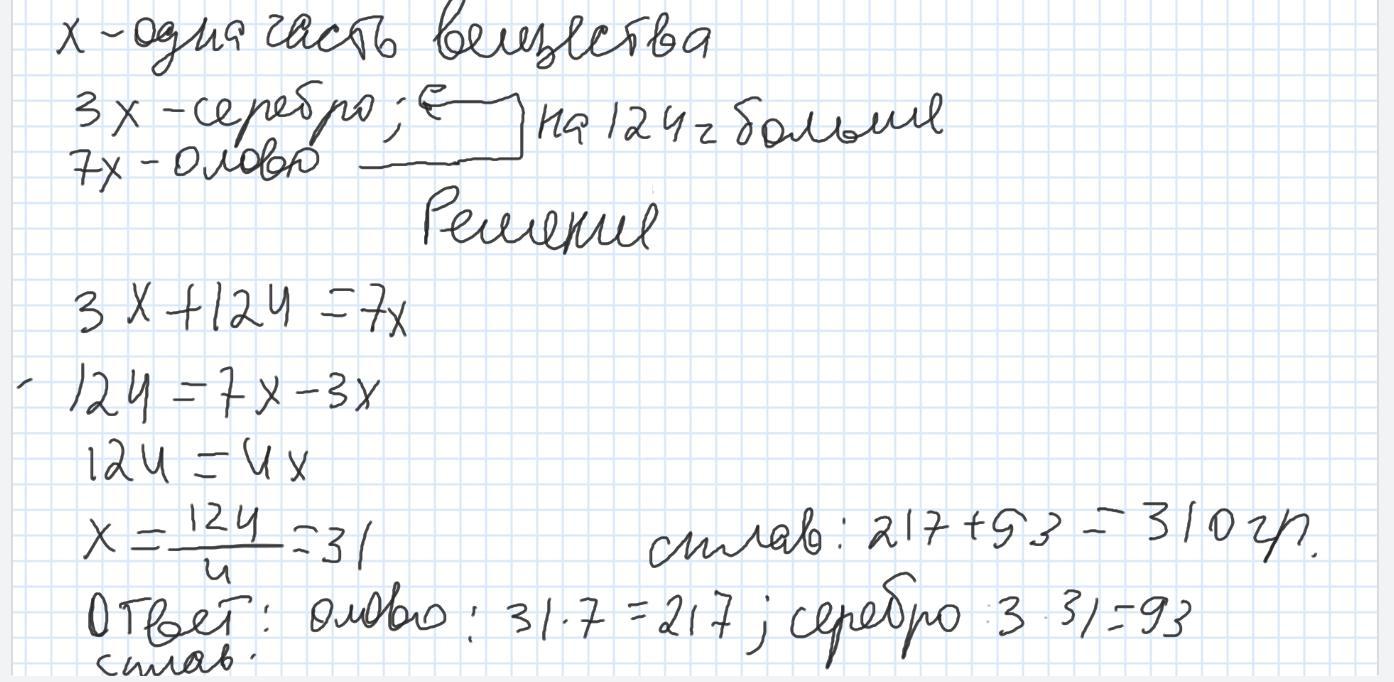 x - одна часть вещества
3x - серебро;
на 124 г больше
7x - олово
Решение
3x + 124 = 7x
124 = 7x - 3x
124 = 4x
x = 124/4 = 31
сплав: 217 + 93 = 310 гр.
Ответ: олово: 31·7 = 217; серебро 3·31 = 93
сплав: